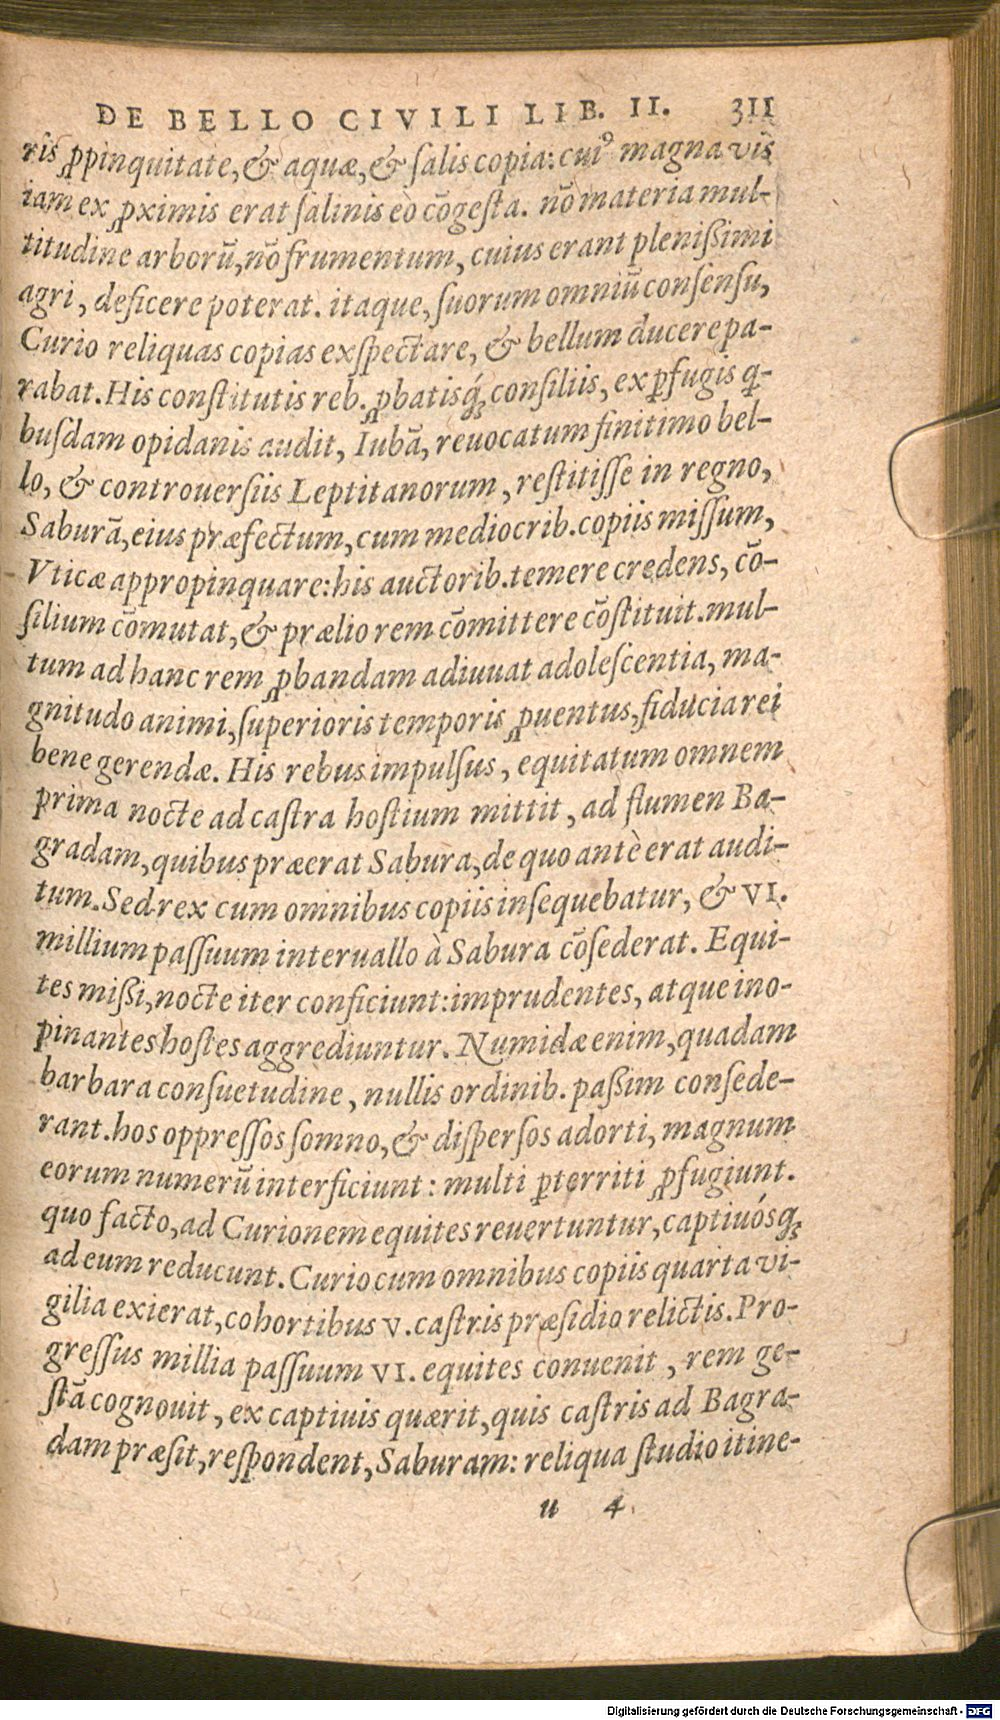 DE BELLO CIVILI LIB. II. 311
ris ꝓpinquitate, & aquæ, & ſalis copia: cuiꝰ magna vis
iam ex ꝓximis erat ſalinis eò cōgeſta. nō materia mul-
titudine arborū, nō frumentum, cuius erant pleniſſimi
agri, deficere poterat. itaque, ſuorum omniū conſenſu,
Curio reliquas copias exſpectare, & bellum ducere pa-
rabat. His conſtitutis reb. ꝓbatisq́; conſiliis, ex ꝑfugis q-
buſdam opidanis audit, Iubā, reuocatum finitimo bel-
lo, & controuerſiis Leptitanorum, reſtitiſſe in regno,
Saburā, eius præfectum, cum mediocrib. copiis miſſum,
Vticæ appropinquare: his auctorib. temere credens, cō-
ſilium cōmutat, & prælio rem cōmittere cōſtituit. mul-
tum ad hanc rem ꝓbandam adiuuat adoleſcentia, ma-
gnitudo animi, ſuperioris temporis ꝓuentus, fiducia rei
bene gerendæ. His rebus impulſus, equitatum omnem
prima nocte ad caſtra hoſtium mittit, ad flumen Ba-
gradam, quibus præerat Sabura, de quo antè erat audi-
tum. Sed rex cum omnibus copiis inſequebatur, & VI.
millium paſſuum interuallo à Sabura cōſederat. Equi-
tes miſſi, nocte iter conficiunt: imprudentes, atque ino-
pinantes hoſtes aggrediuntur. Numidæ enim, quadam
barbara conſuetudine, nullis ordinib. paſſim conſede-
rant. hos oppreſſos ſomno, & diſperſos adorti, magnum
eorum numerū interficiunt: multi ꝑterriti ꝓfugiunt.
quo facto, ad Curionem equites reuertuntur, captiuósq;
ad eum reducunt. Curio cum omnibus copiis quarta vi-
gilia exierat, cohortibus V. caſtris præſidio relictis. Pro-
greſſus millia paſſuum VI. equites conuenit, rem ge-
ſtā cognouit, ex captiuis quærit, quis caſtris ad Bagra-
dam præſit, reſpondent, Saburam: reliqua ſtudio itine-
u 4
Digitalisierung gefördert durch die Deutsche Forschungsgemeinschaft - DFG